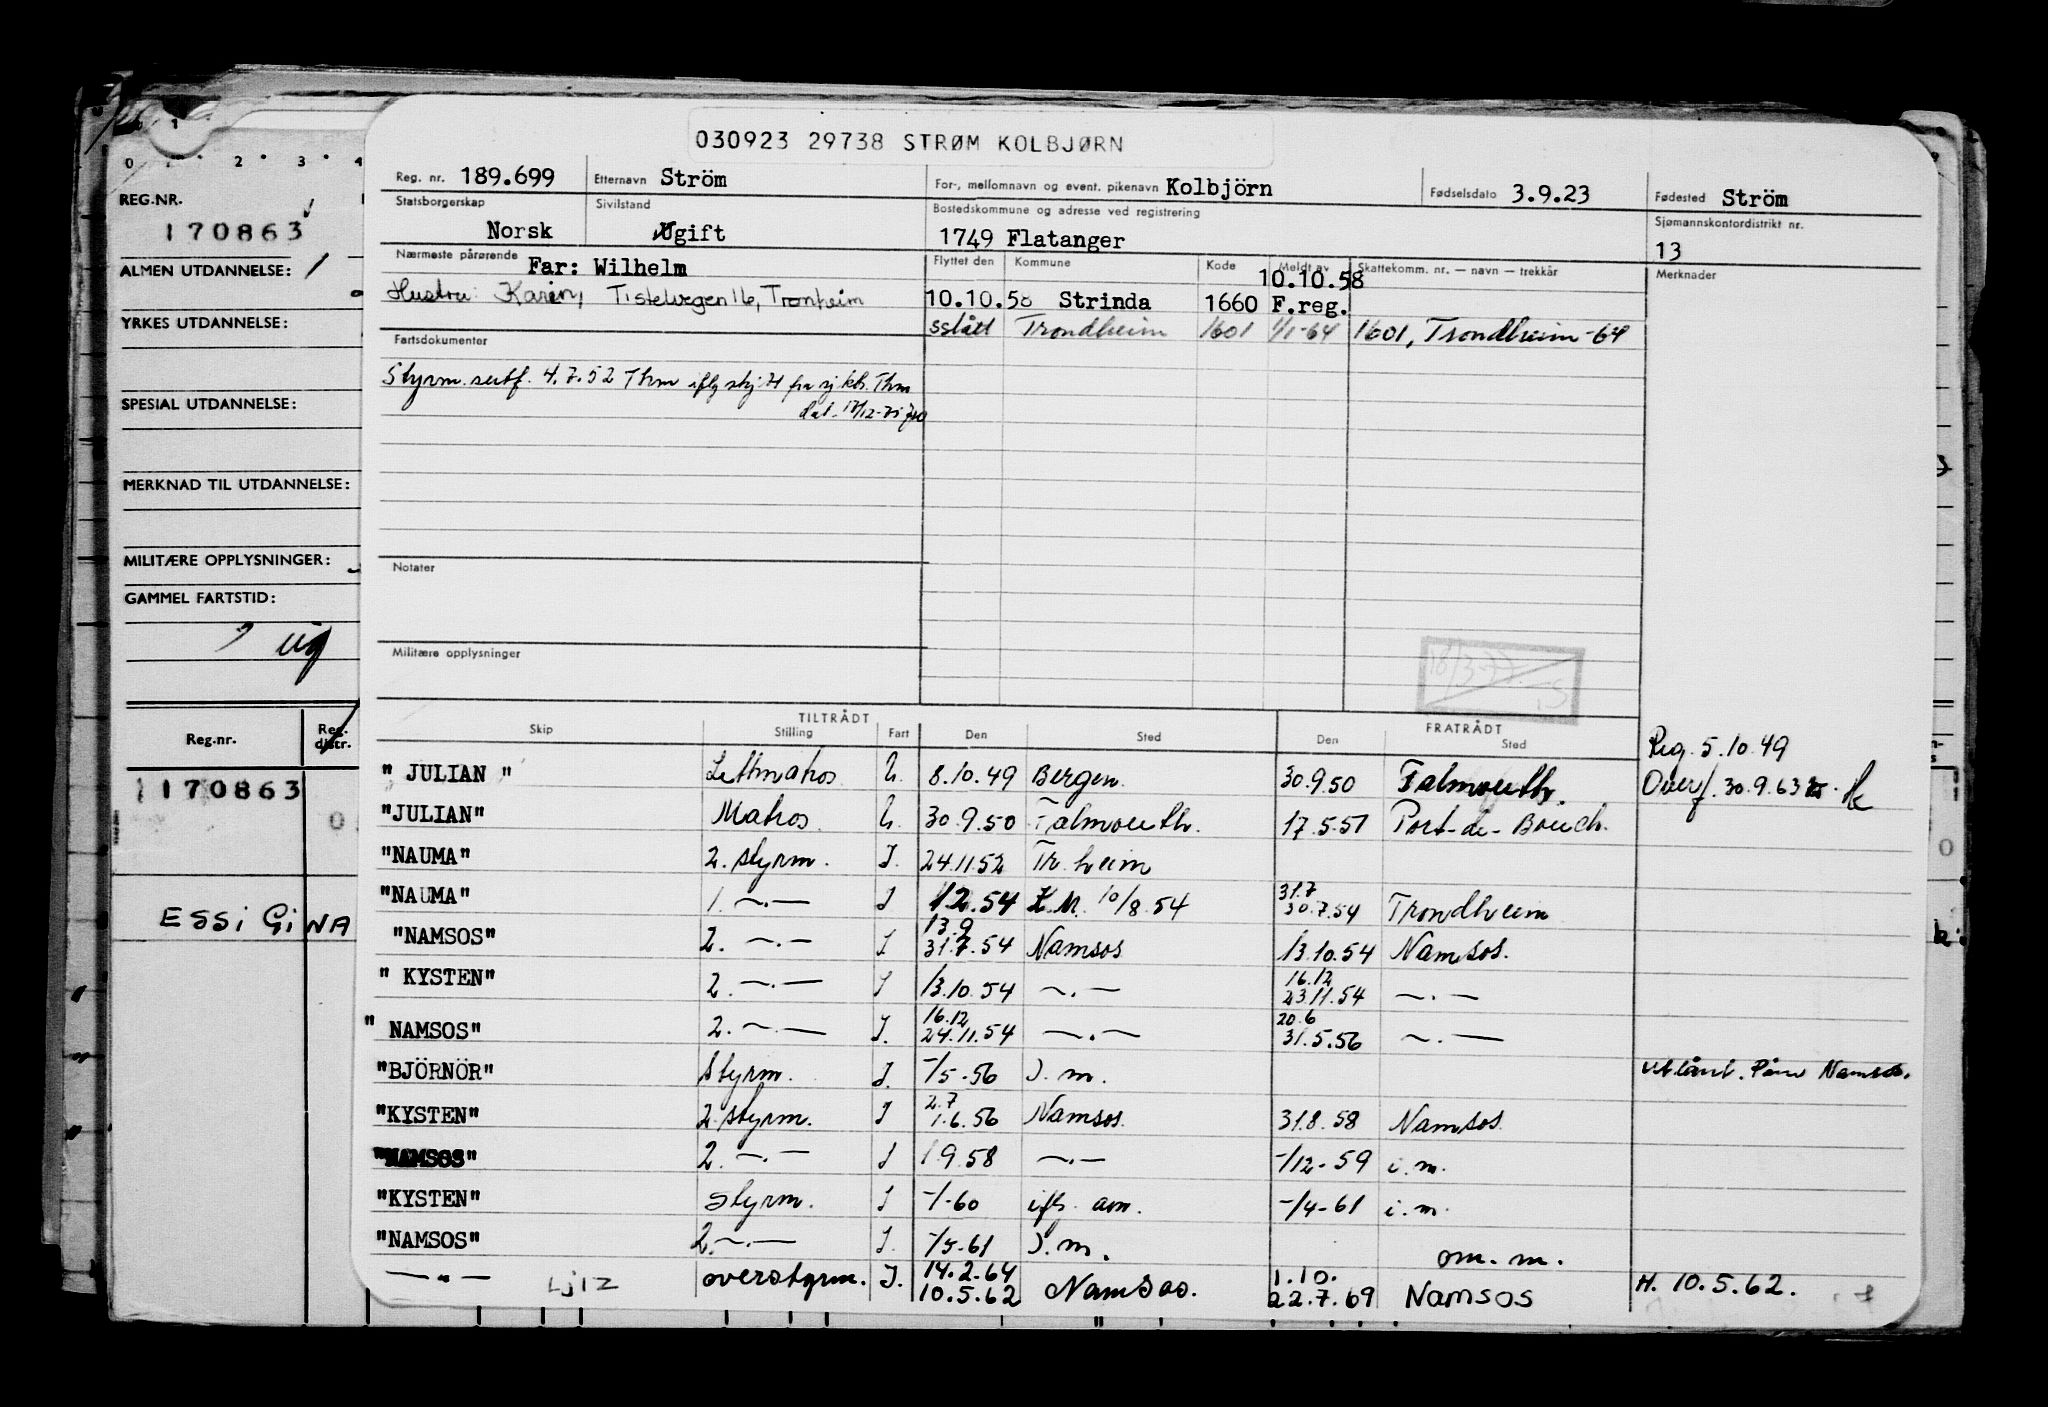 030923 29738 STRØM KOLBJØRN
Reg. nr. 189.699 Etternavn Ström For-, mellomnavn og event. pikenavn Kolbjörn Fødselsdato 3.9.23 Fødested Ström
Statsborgerskap Norsk Sivilstand Ugift Bostedskommune og adresse ved registrering 1749 Flatanger Sjømannskontordistrikt nr. 13
Nærmeste pårørende Far: Wilhelm Flyttet den Kommune Kode Meldt av Skattekomm. nr. — navn — trekkår Merknader
10.10.58
Hustru: Karin, Tistelvegen 16, Tronheim 10.10.58 Strinda 1660 F.reg.
sslått Trondheim 1601 1/1-64 1601, Trondheim-64
Fartsdokumenter
Styrm. sertf. 4.7.52 Thm iflg skj H fra sj.ktr. Thm
dat.
Notater
Militære opplysninger
TILTRÅDT FRATRÅDT
Skip Stilling Fart Den Sted Den Sted
Reg. 5.10.49
" JULIAN " Lettmatros U. 8.10.49 Bergen. 30.9.50 Falmouth. Overf. 30.9.63
"JULIAN" Matros. U. 30.9.50 Falmouth. 17.5.51 Port-de-Bouch.
"NAUMA" 2. styrm. I. 24.11.52 Tr.heim
"NAUMA" 1. —.— I 1.2.54 K.M. 10/8.54 31.7 30.7.54 Trondheim
"NAMSOS" 2. —.— I 13.9 31.7.54 Namsos 13.10.54 Namsos.
" KYSTEN" 2. —.— I 13.10.54 —.— 16.12 23.11.54 —.—
" NAMSOS" 2. —.— I. 16.12 24.11.54 —.— 20.6 31.5.56 —.—
"BJÖRNÖR" Styrm. I. -/5-56 I.m. utlånt. Namsos.
"KYSTEN" 2. styrm. I 2.7 1.6.56 Namsos. 31.8.58 Namsos.
"NAMSOS" 2. —.— I 1.9.58 —.— -/12-59 i.m.
"KYSTEN" Styrm. I -/-60 ifl. am. -/4-61 i.m.
"NAMSOS" 2. —.— I. -/5-61 I.m. om. m.
— " — Lj12 overstyrm. I. 14.2.64 10.5.62 Namsos. 1.10. 22.7.69 Namsos H. 10.5.62.
0 1 2 3 4
REG.NR.
170863
ALMEN UTDANNELSE: 1
YRKES UTDANNELSE:
SPESIAL UTDANNELSE:
MERKNAD TIL UTDANNELSE:
MILITÆRE OPPLYSNINGER:
GAMMEL FARTSTID:
Reg.nr. Reg. distr.
170863
ESSI GINA